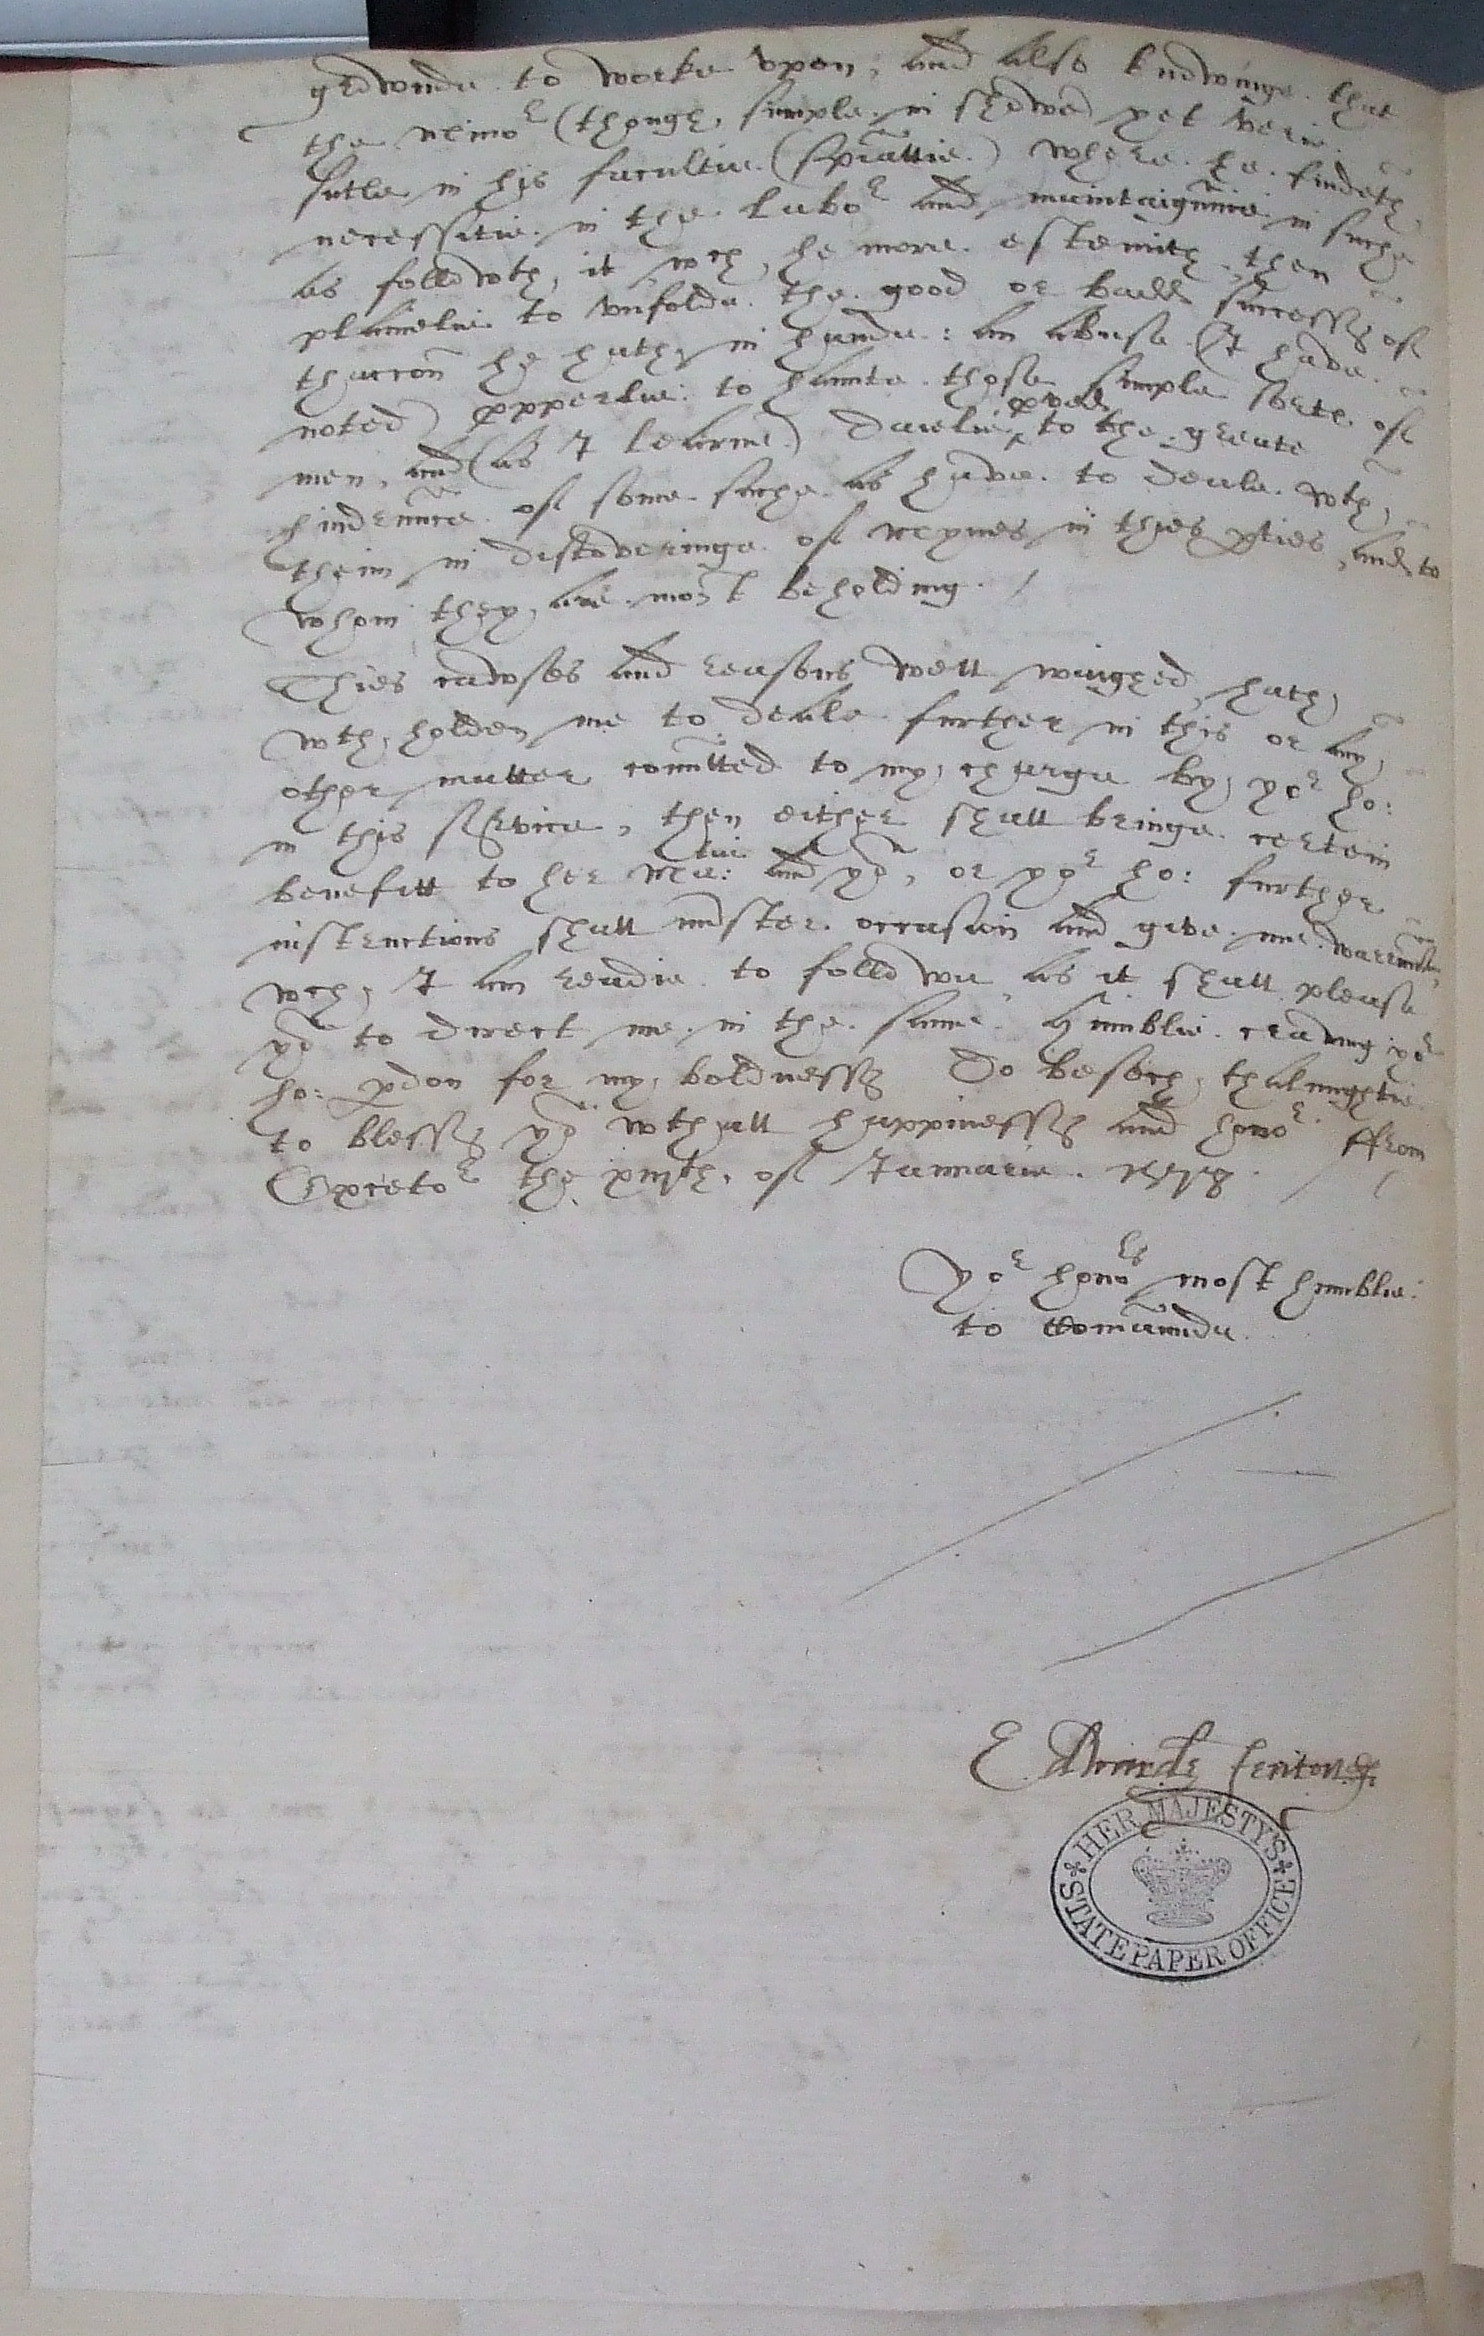 grownde to worke vpon, and also knowinge that
the Mino^r (thoughe simple in showe) yet verie
sutle in his facultie (spēattie) where he findeth
necessitie in the labo^r and maintaignn̄ce in suche
as followth it, wch he more estemith then
plainelie to vnfolde the good or badd successe of
thaccon̄ he hath in hande: an abuse (I have
noted) ppperlie to haunte those simple sorte of
men, and (as I learne) dailie pved to the greate
hindrannce of some suche as have to deale wth
theim in discoveringe of Mynes in thies pties, and to
whom they are most beholding. /
Thies cawses and reasons well waighed hath
wth holden me to deale further in this or any
other matter com̄itted to my charge by yo^r ho:
in this service, then either shall bringe certein
benefitt to her Ma^tie: and yo^u, or yo^r ho: further
instructions shall minister occasion and geve me warrannte
wch I am readie to followe as it shall please
yo^u to direct me in the same. Humblie craving yo^r
ho: pdon for my boldnesse Do besech thalmightie
to blesse yo^u wth all happinesse and hono^r. ffrom
the xviijth of Januarie. 1578. /
Yo^r hono^rs most humblie
to Com̄aunde.
Edwarde Fenton
HER MAJESTY'S
STATE PAPER OFFICE